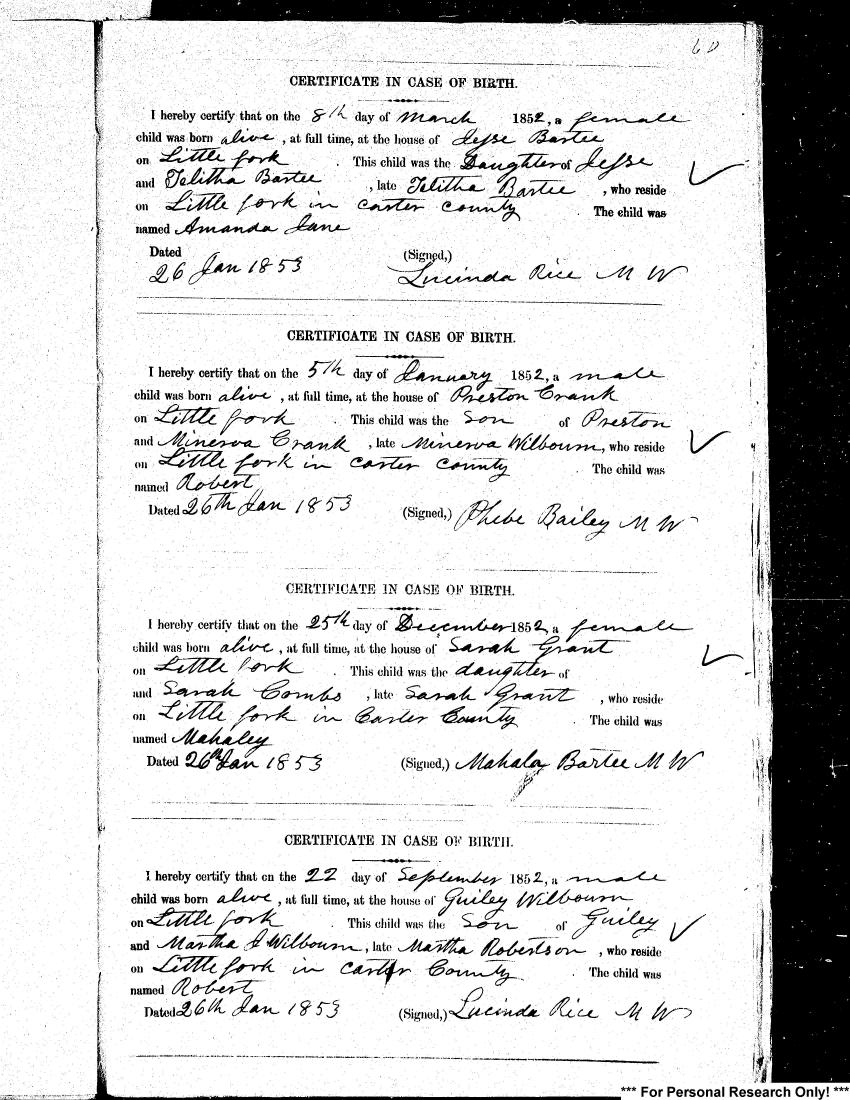 60
CERTIFICATE IN CASE OF BIRTH.
I hereby certify that on the 8th day of March 1852, a female
child was born alive, at full time, at the house of Jesse Bartee
on Little fork . This child was the Daughter of Jesse
and Telitha Bartee , late Telitha Bartee , who reside
on Little fork in carter county . The child was
named Amanda Jane
Dated (Signed,)
26 Jan 1853 Lucinda Rice M W
CERTIFICATE IN CASE OF BIRTH.
I hereby certify that on the 5th day of January 1852, a male
child was born alive, at full time, at the house of Preston Crank
on Little fork . This child was the Son of Preston
and Minerva Crank , late Minerva Wilbourn, who reside
on Little fork in carter county . The child was
named Robert
Dated 26th Jan 1853 (Signed,) Phebe Bailey M W
CERTIFICATE IN CASE OF BIRTH.
I hereby certify that on the 25th day of December 1852, a female
child was born alive, at full time, at the house of Sarah Grant
on Little fork . This child was the daughter of
and Sarah Combs , late Sarah Grant , who reside
on Little fork in Carter County . The child was
named Mahaley
Dated 26th Jan 1853 (Signed,) Mahala Bartee M W
CERTIFICATE IN CASE OF BIRTH.
I hereby certify that on the 22 day of September 1852, a male
child was born alive, at full time, at the house of Guiley Wilbourn
on Little fork . This child was the Son of Guiley
and Martha J Wilbourn, late Martha Robertson , who reside
on Little fork in carter County . The child was
named Robert
Dated 26th Jan 1853 (Signed,) Lucinda Rice M W
*** For Personal Research Only! ***